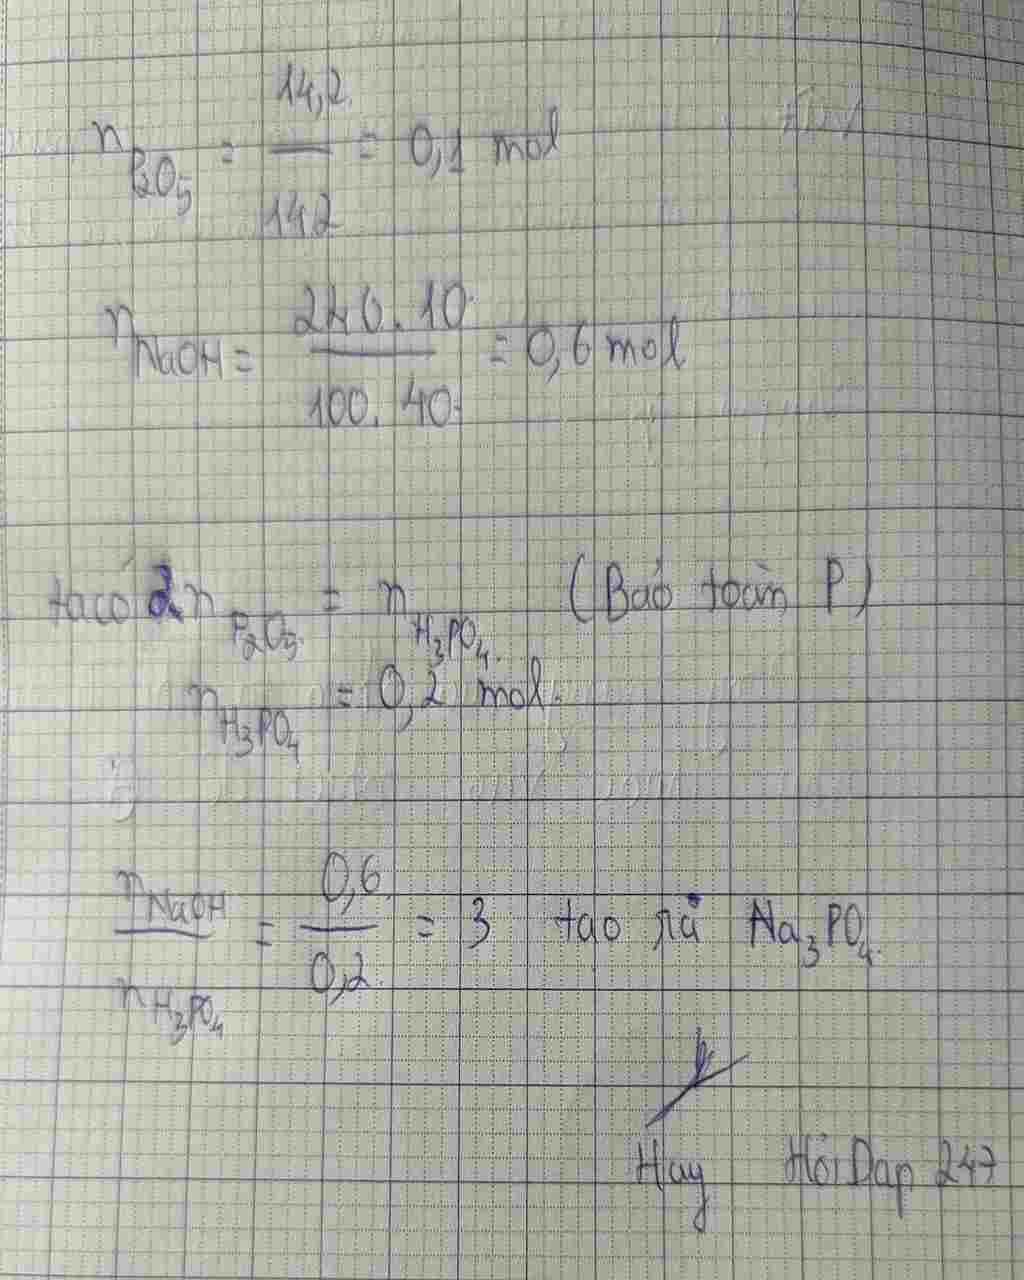 n P2O5 = 14,2 / 142 = 0,1 mol
n NaOH = 240. 10 / 100. 40 = 0,6 mol
ta có 2n P2O5 = n H3PO4 (Bảo toàn P)
n H3PO4 = 0,2 mol.
n NaOH / n H3PO4 = 0,6 / 0,2 = 3 tạo ra Na3PO4
Hay Hỏi Dap 247